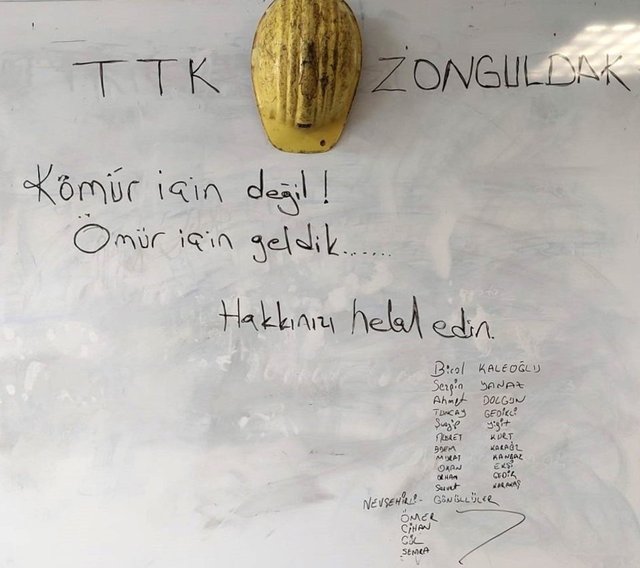 TTK ZONGULDAK
Kömür için değil!
Ömür için geldik......
Hakkınızı helal edin.
Birol KALEOĞLU
Sezgin YANAZ
Ahmet DOLGUN
TUNCAY GEDİKLİ
Yiğit
KURT
ADEM KARAÖZ
MURAT
OKAN EKŞİ
ORHAN GEDİK
Servet KARAKAŞ
NEVŞEHİRLİ- GÖNÜLLÜLER
ÖMER
CİHAN
GÜL
SEMRA